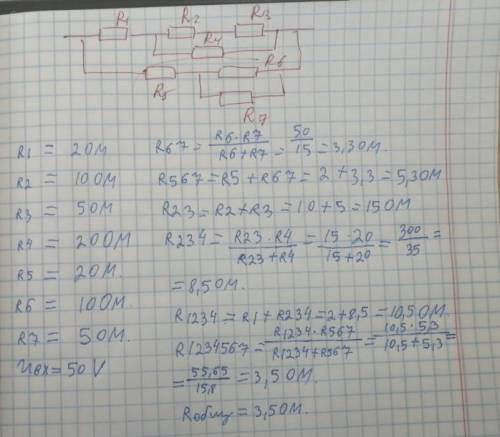 R1 R2 R3
R4
R5 R6
R7
R1 = 2OM
R2 = 10OM
R3 = 5OM
R4 = 20OM
R5 = 2OM.
R6 = 10OM.
R7 = 5OM.
Uвх = 50 V
R67 = R6·R7 / R6+R7 = 50 / 15 = 3,3OM.
R567 = R5 + R67 = 2 + 3,3 = 5,3OM
R23 = R2 + R3 = 10 + 5 = 15OM
R234 = R23·R4 / R23+R4 = 15·20 / 15+20 = 300 / 35 =
= 8,5OM.
R1234 = R1 + R234 = 2 + 8,5 = 10,5OM.
R1234567 = R1234·R567 / R1234+R567 = 10,5·5,3 / 10,5+5,3 =
= 55,65 / 15,8 = 3,5OM.
Rобщ = 3,5OM.